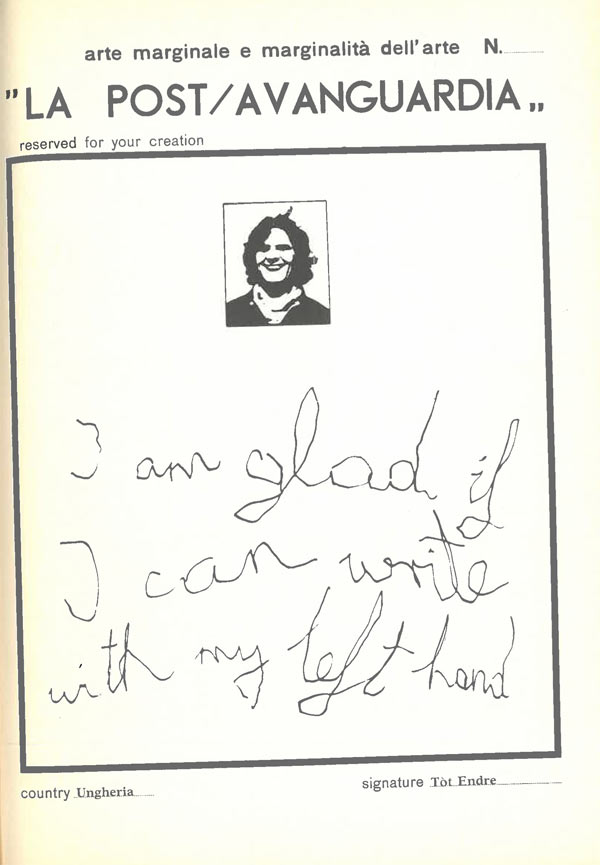 arte marginale e marginalità dell'arte N.
"LA POST/AVANGUARDIA„
reserved for your creation
I am glad if
I can write
with my left hand
country Ungheria
signature Tòt Endre